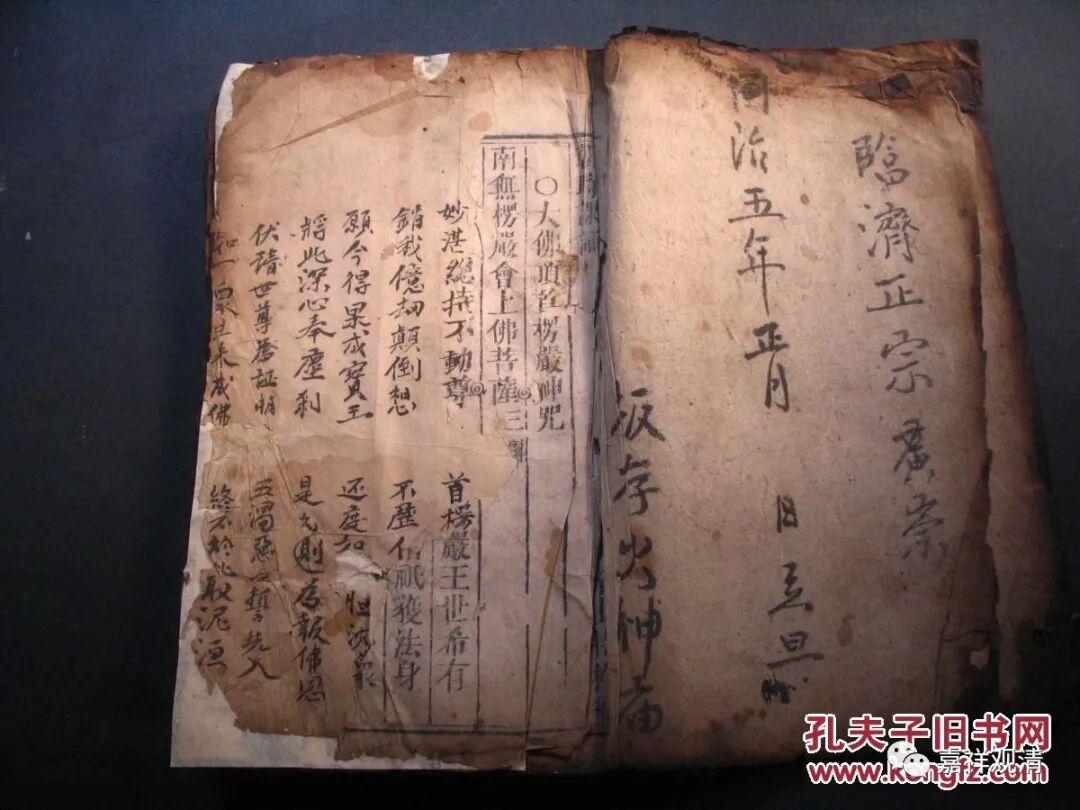 臨濟正宗廣崇
同治五年正月 日立旦
板存火神庙
○大佛頂首楞嚴神咒
南無楞嚴會上佛菩薩三稱
妙湛總持不動尊 首楞嚴王世希有
銷我億劫顛倒想 不歷僧祇獲法身
願今得果成寶王 还度如 眾
將此深心奉塵刹 是 則 報佛恩
伏請世尊為証明 五濁惡 誓先入
如一 未成佛 終不於此取泥洹
孔夫子旧书网
www.kongfz.com
嘉祥观清